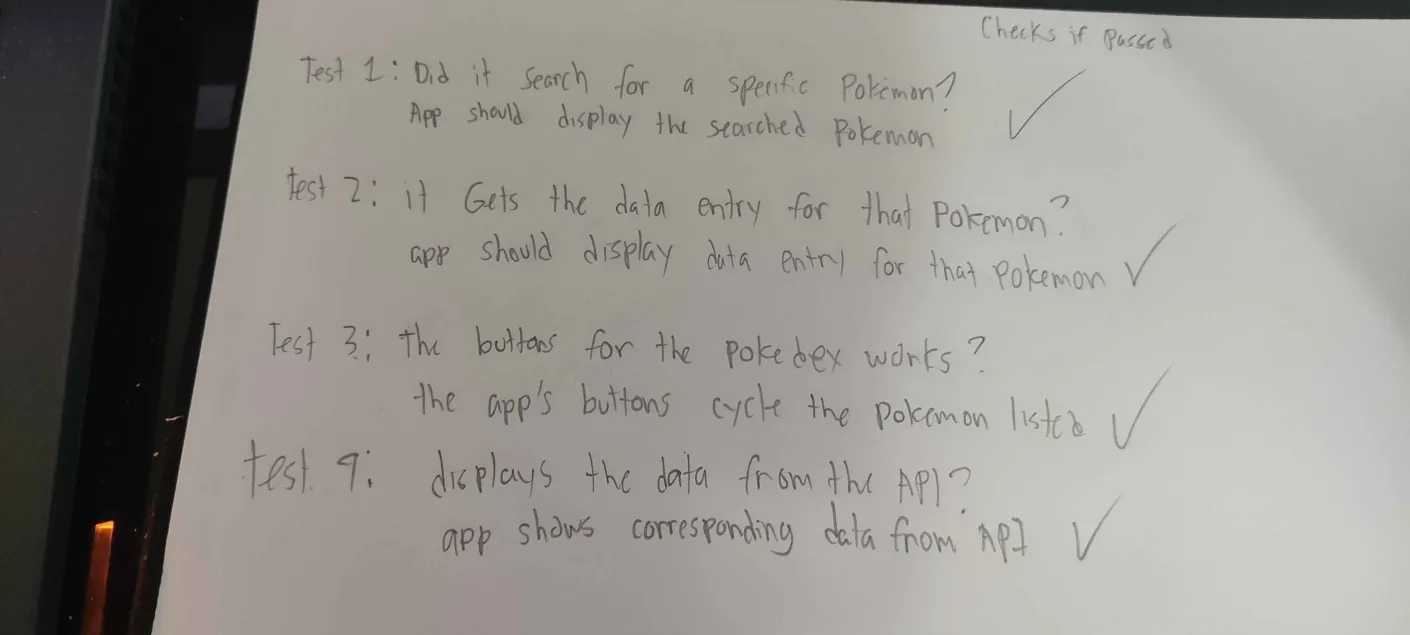 Checks if passed
Test 1: Did it search for a specific Pokemon?
App should display the searched Pokemon
Test 2: it Gets the data entry for that Pokemon?
app should display data entry for that Pokemon
Test 3: the buttons for the pokedex works?
the app's buttons cycle the pokemon listed
test 4: displays the data from the API?
app shows corresponding data from API